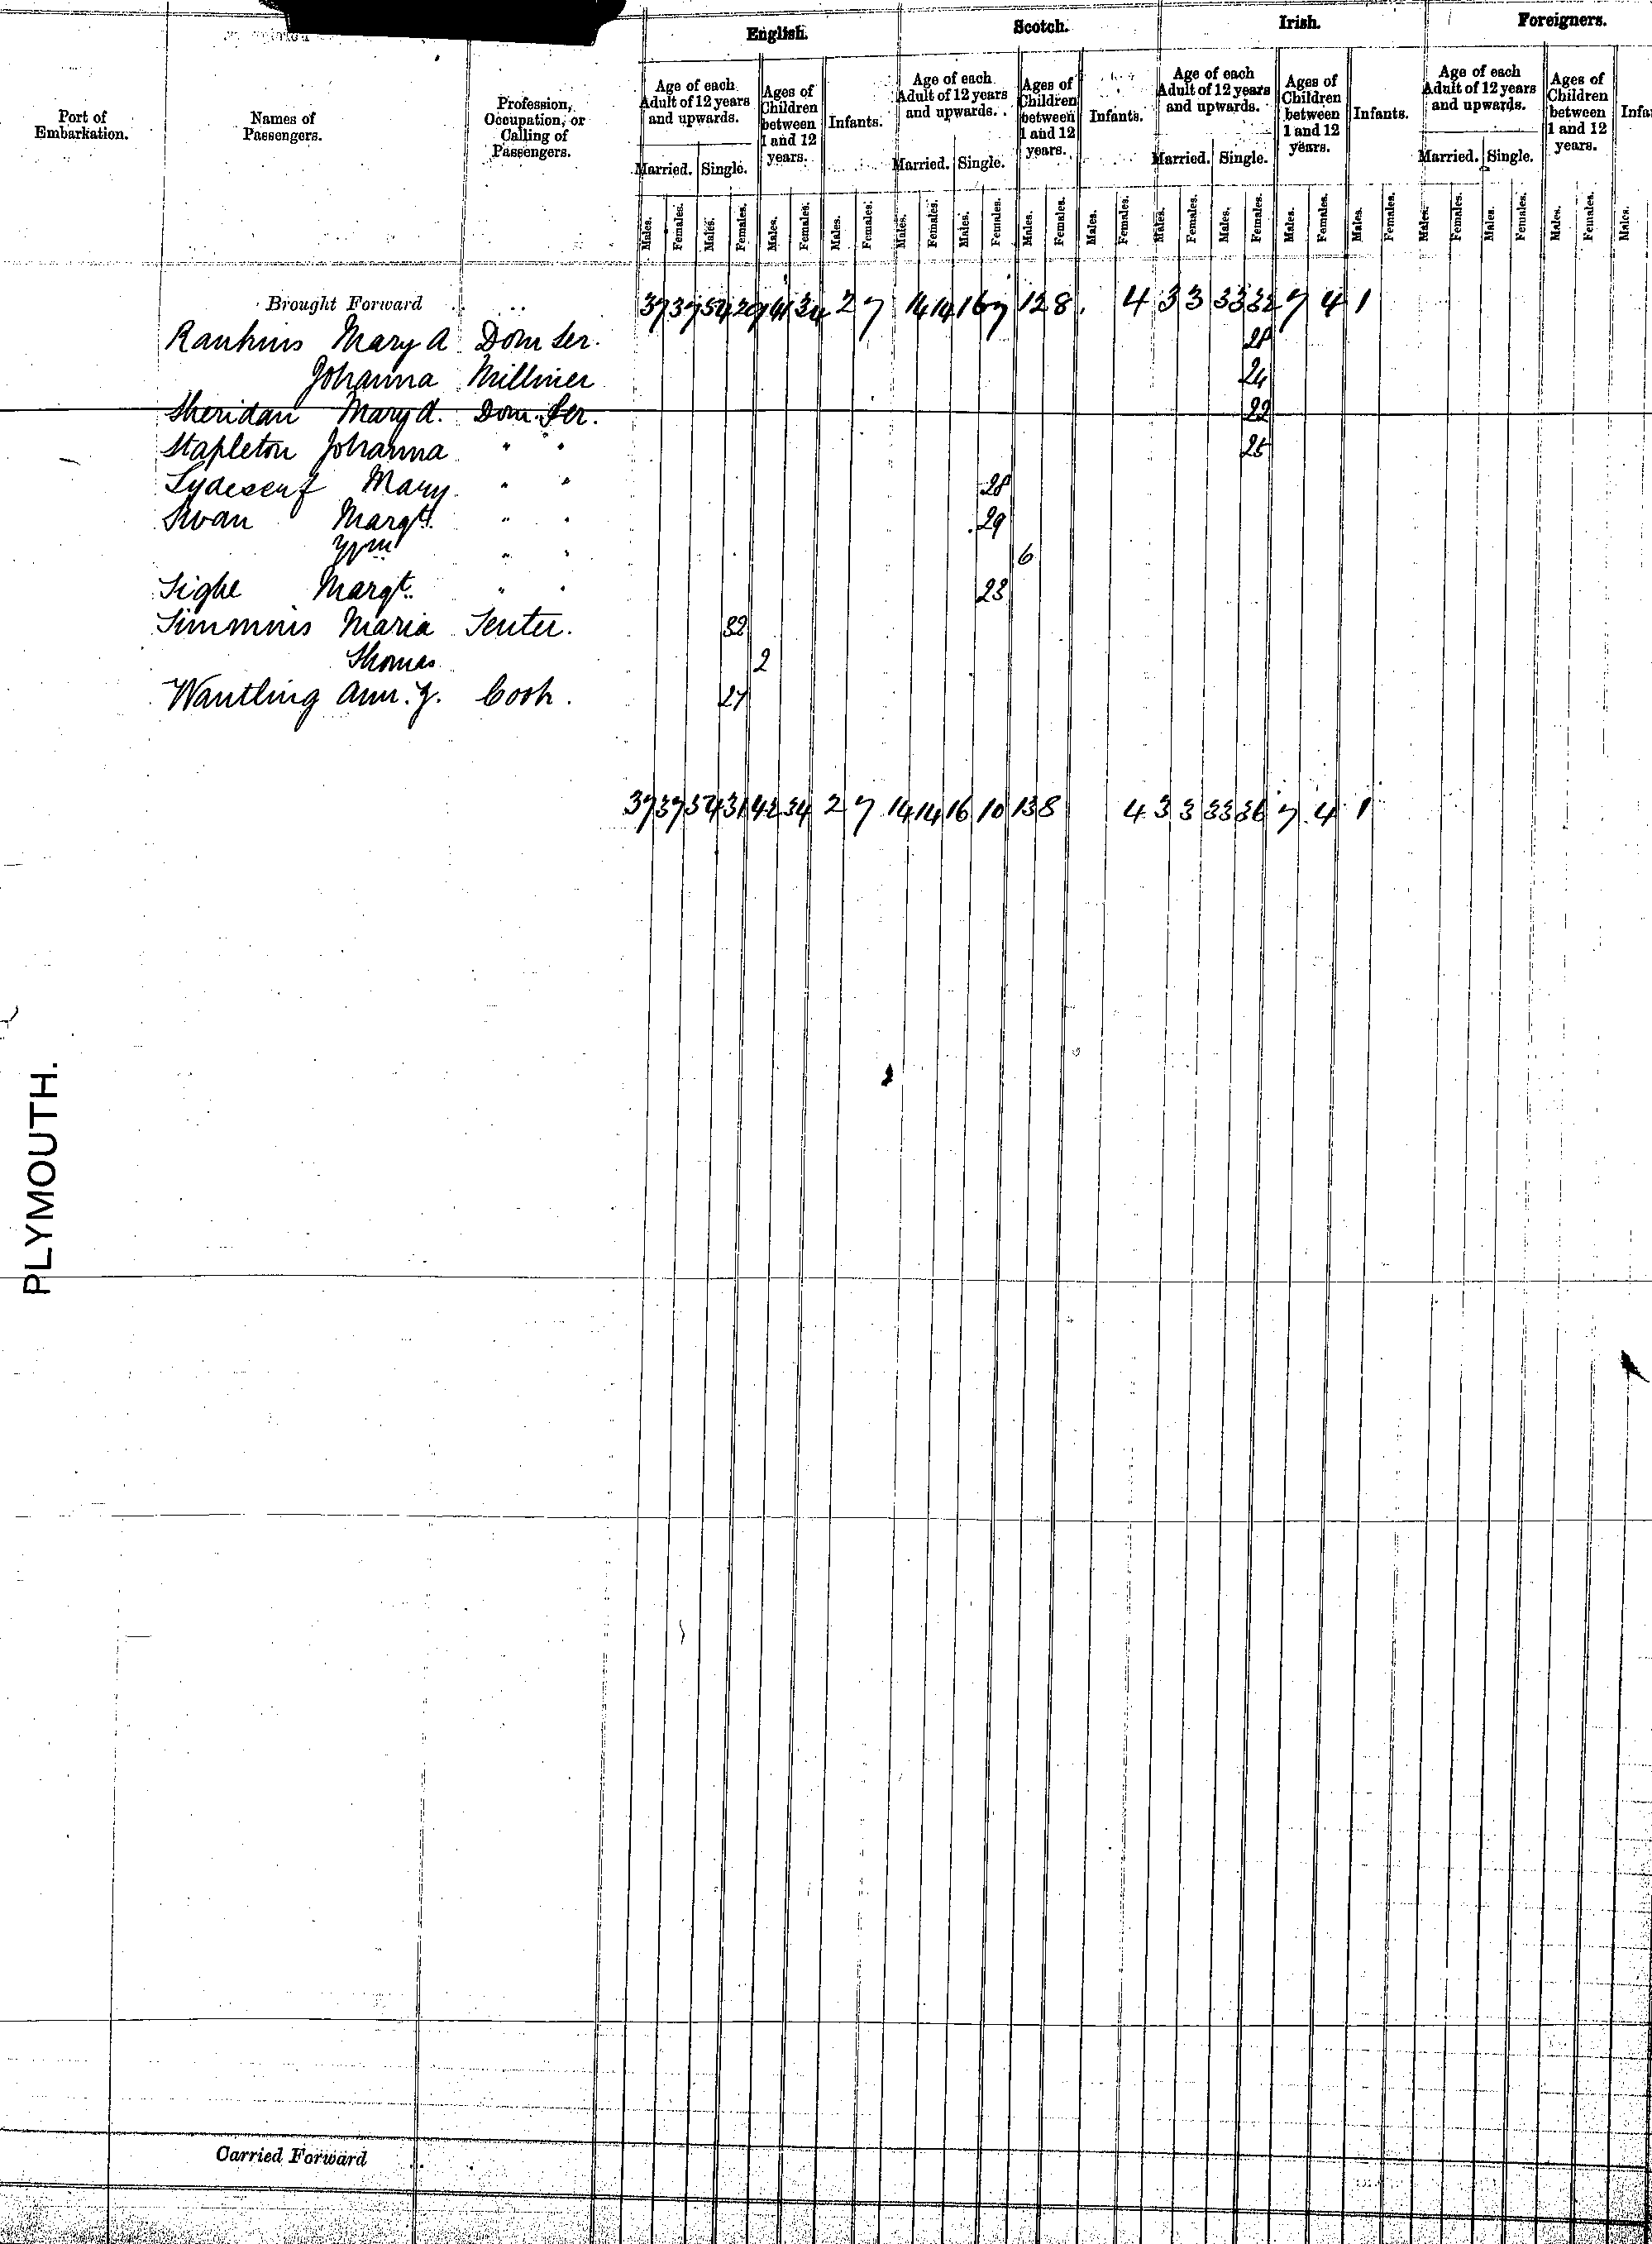 English. Scotch. Irish. Foreigners.
Port of Embarkation. Names of Passengers. Profession, Occupation, or Calling of Passengers.
Age of each Adult of 12 years and upwards. Ages of Children between 1 and 12 years. Infants. Age of each Adult of 12 years and upwards. Ages of Children between 1 and 12 years. Infants. Age of each Adult of 12 years and upwards. Ages of Children between 1 and 12 years. Infants. Age of each Adult of 12 years and upwards. Ages of Children between 1 and 12 years.
Married. Single. Married. Single. Married. Single. Married. Single.
Males. Females. Males. Females. Males. Females. Males. Females. Males. Females. Males. Females. Males. Females. Males. Females. Males. Females. Males. Females. Males. Females. Males. Females. Males. Females. Males. Females. Males. Females. Males.
Brought Forward 37 37 54 29 41 34 2 7 14 14 16 7 12 8 4 3 3 33 32 7 4 1
Rankins Mary A Dom Ser. 28
Johanna Milliner 24
Sheridan Mary A. Dom. Ser. 22
Stapleton Johanna " " 25
Mary " " 28
Swan Margt. " " 29
Wm " " 6
Tighe Margt. " " 23
Timmins Maria 32
Thomas 2
Wantling Ann. Cook. 27
37 37 54 31 42 34 2 7 14 14 16 10 13 8 4 3 3 33 36 7 4 1
PLYMOUTH.
Carried Forward